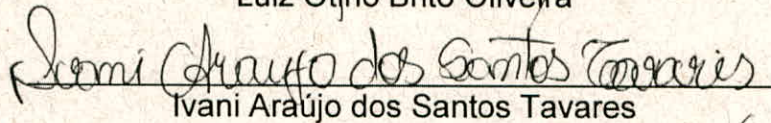 Luiz Otino Brito Oliveira
Ivani Araujo dos Santos Tavares
Ivani Araújo dos Santos Tavares